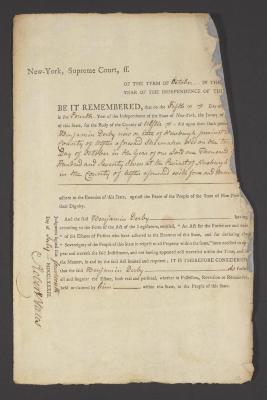 New-York, Supreme Court, ss.
OF THE TERM OF October IN TH
YEAR OF THE INDEPENDENCE OF TH
BE IT REMEMBERED, that on the Fifth Day
in the Fourth Year of the Independence of the State of New-York, the Jurors of
of this State, for the Body of the County of Ulster upon their Oath present
Benjamin Darby now or late of Newburgh precinct in
County of Ulster aforesaid on the
Day of October in the Year of our Lord one Thousand
Hundred and Seventy Seven at the Precinct of Newburgh
in the County of Ulster aforesaid with force and Arms
adhere to the Enemies of this State, against the Peace of the People of the State of New-York
their Dignity.
And the said Benjamin Darby having
according to the Form of the Act of the Legislature, entitled, "An Act for the Forfeiture and Sale
"of the Estates of Persons who have adhered to the Enemies of this State, and for declaring the
"Sovereignty of the People of this State in respect to all Property within the same,"
and traverse the said Indictment, and not having appeared and traversed within the Time, and in
the Manner, in and by the said Act limited and required; IT IS THEREFORE CONSIDERED
that the said Benjamin Darby do forfeit
all and singular the Estate, both real and personal, whether in Possession, Reversion or Remainder,
held or claimed by him within this State, to the People of this State.
Day of July MDCCLXXXIII.
Robert Yates